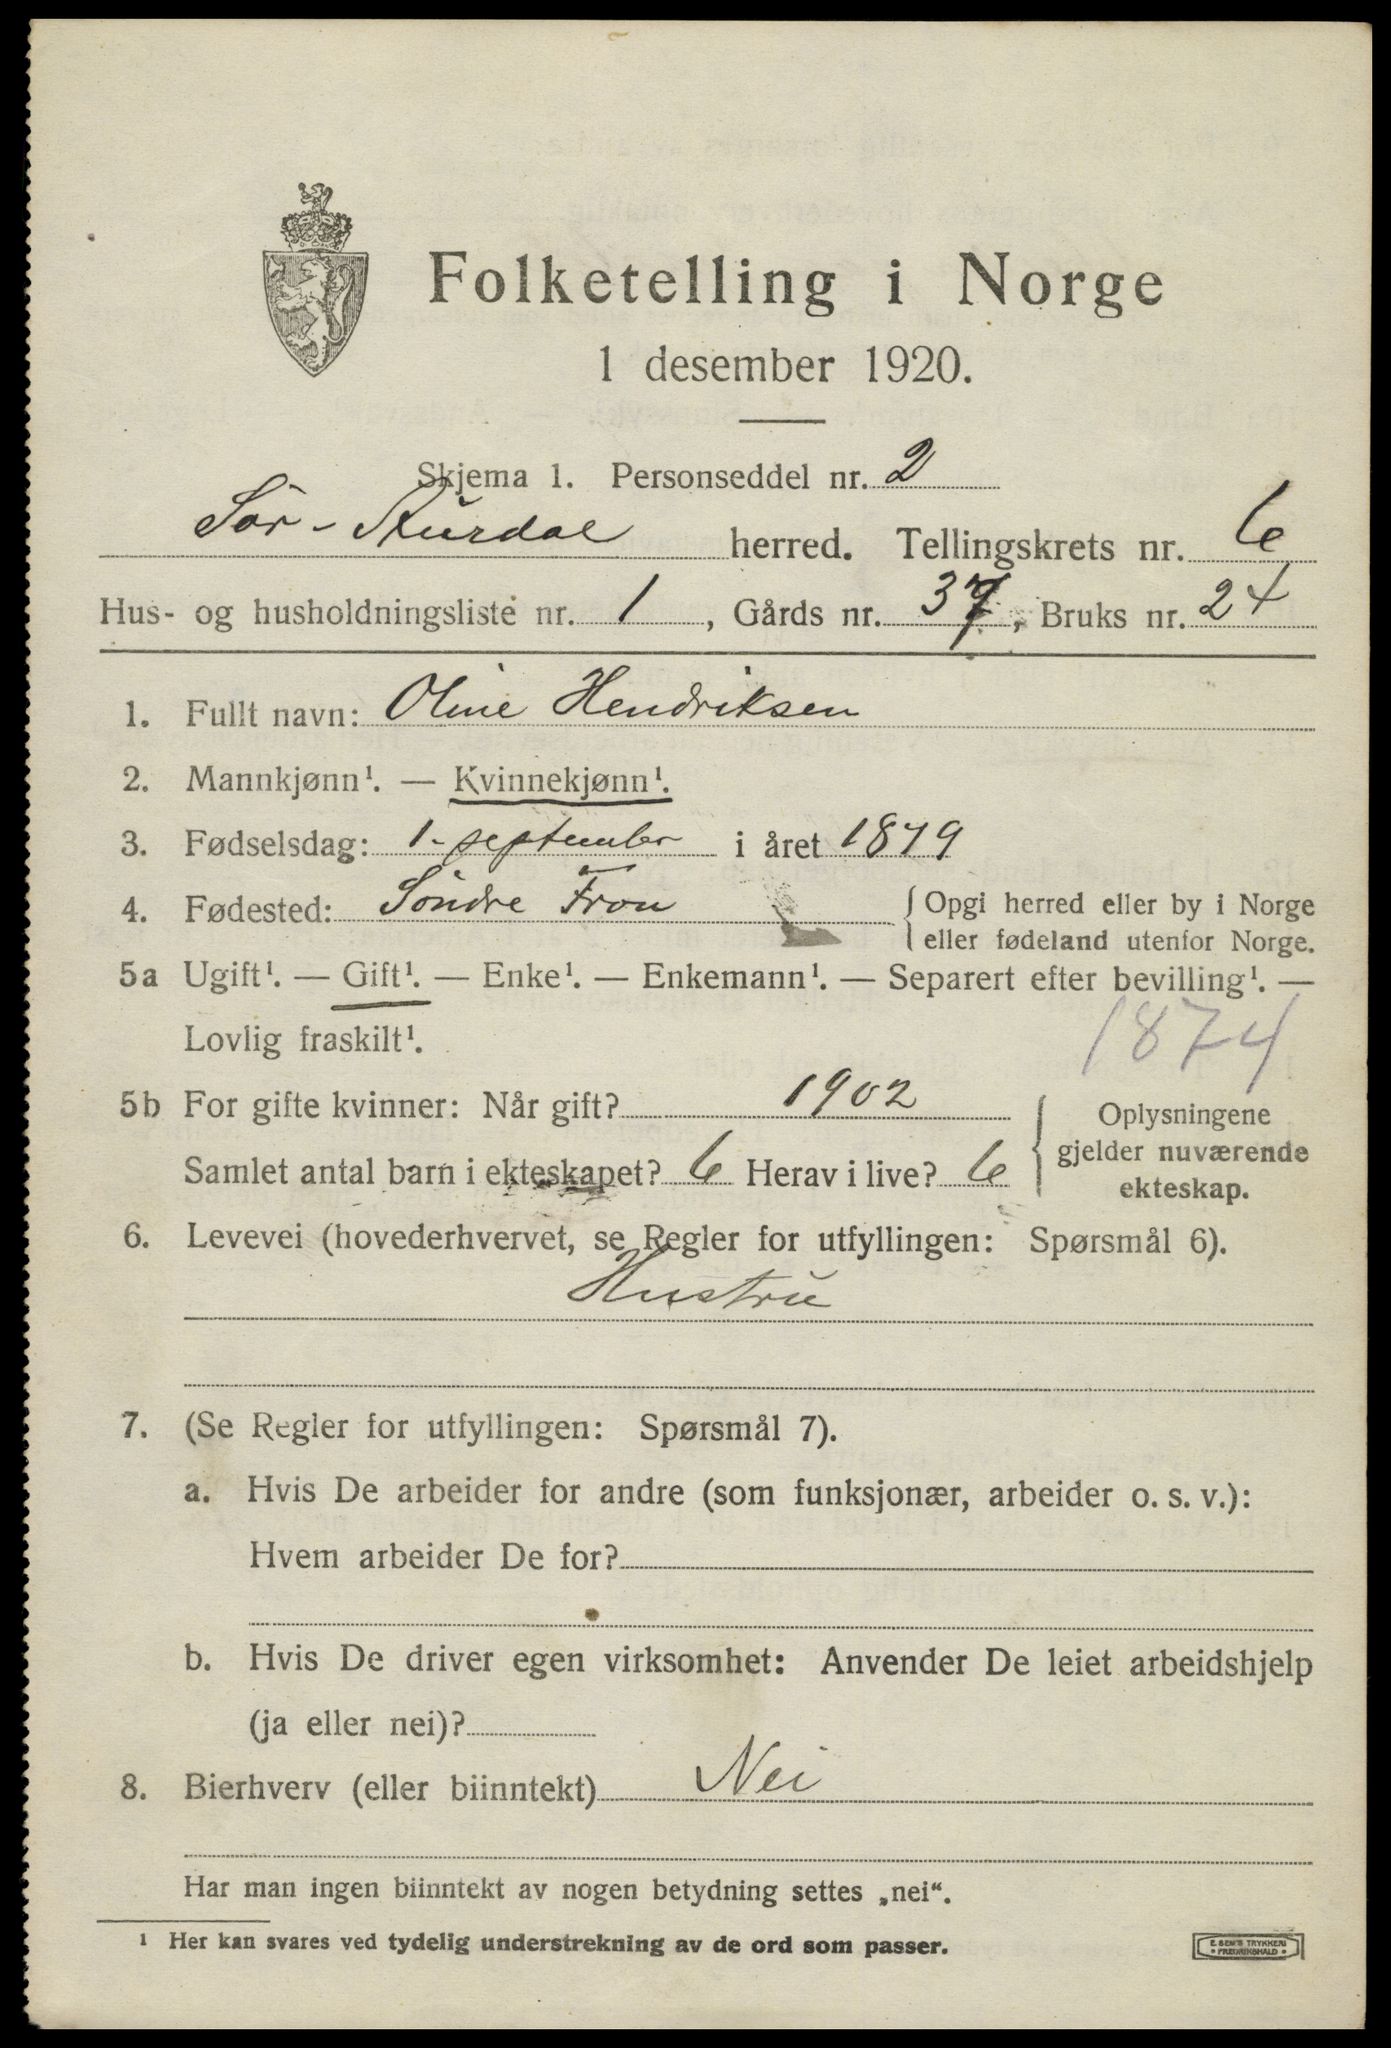 Folketelling i Norge
1 desember 1920.
Skjema 1. Personseddel nr. 2
Sör-Aurdal herred. Tellingskrets nr. 6
Hus- og husholdningsliste nr. 1, Gårds nr. 37, Bruks nr. 24
1. Fullt navn: Oline Hendriksen
2. Mannkjønn¹. — Kvinnekjønn¹.
3. Fødselsdag: 1. september i året 1879
4. Fødested: Söndre Fron { Opgi herred eller by i Norge
eller fødeland utenfor Norge.
5a Ugift¹. — Gift¹. — Enke¹. — Enkemann¹. — Separert efter bevilling¹. —
Lovlig fraskilt¹.
1874
5b For gifte kvinner: Når gift? 1902
Samlet antal barn i ekteskapet? 6 Herav i live? 6
{ Oplysningene
gjelder nuværende
ekteskap.
6. Levevei (hovederhvervet, se Regler for utfyllingen: Spørsmål 6).
Hustru
7. (Se Regler for utfyllingen: Spørsmål 7).
a. Hvis De arbeider for andre (som funksjonær, arbeider o. s. v.):
Hvem arbeider De for?
b. Hvis De driver egen virksomhet: Anvender De leiet arbeidshjelp
(ja eller nei)?
8. Bierhverv (eller biinntekt) Nei
Har man ingen biinntekt av nogen betydning settes „nei“.
¹ Her kan svares ved tydelig understrekning av de ord som passer.
E. SEM'S TRYKKERI
• FREDRIKSHALD •